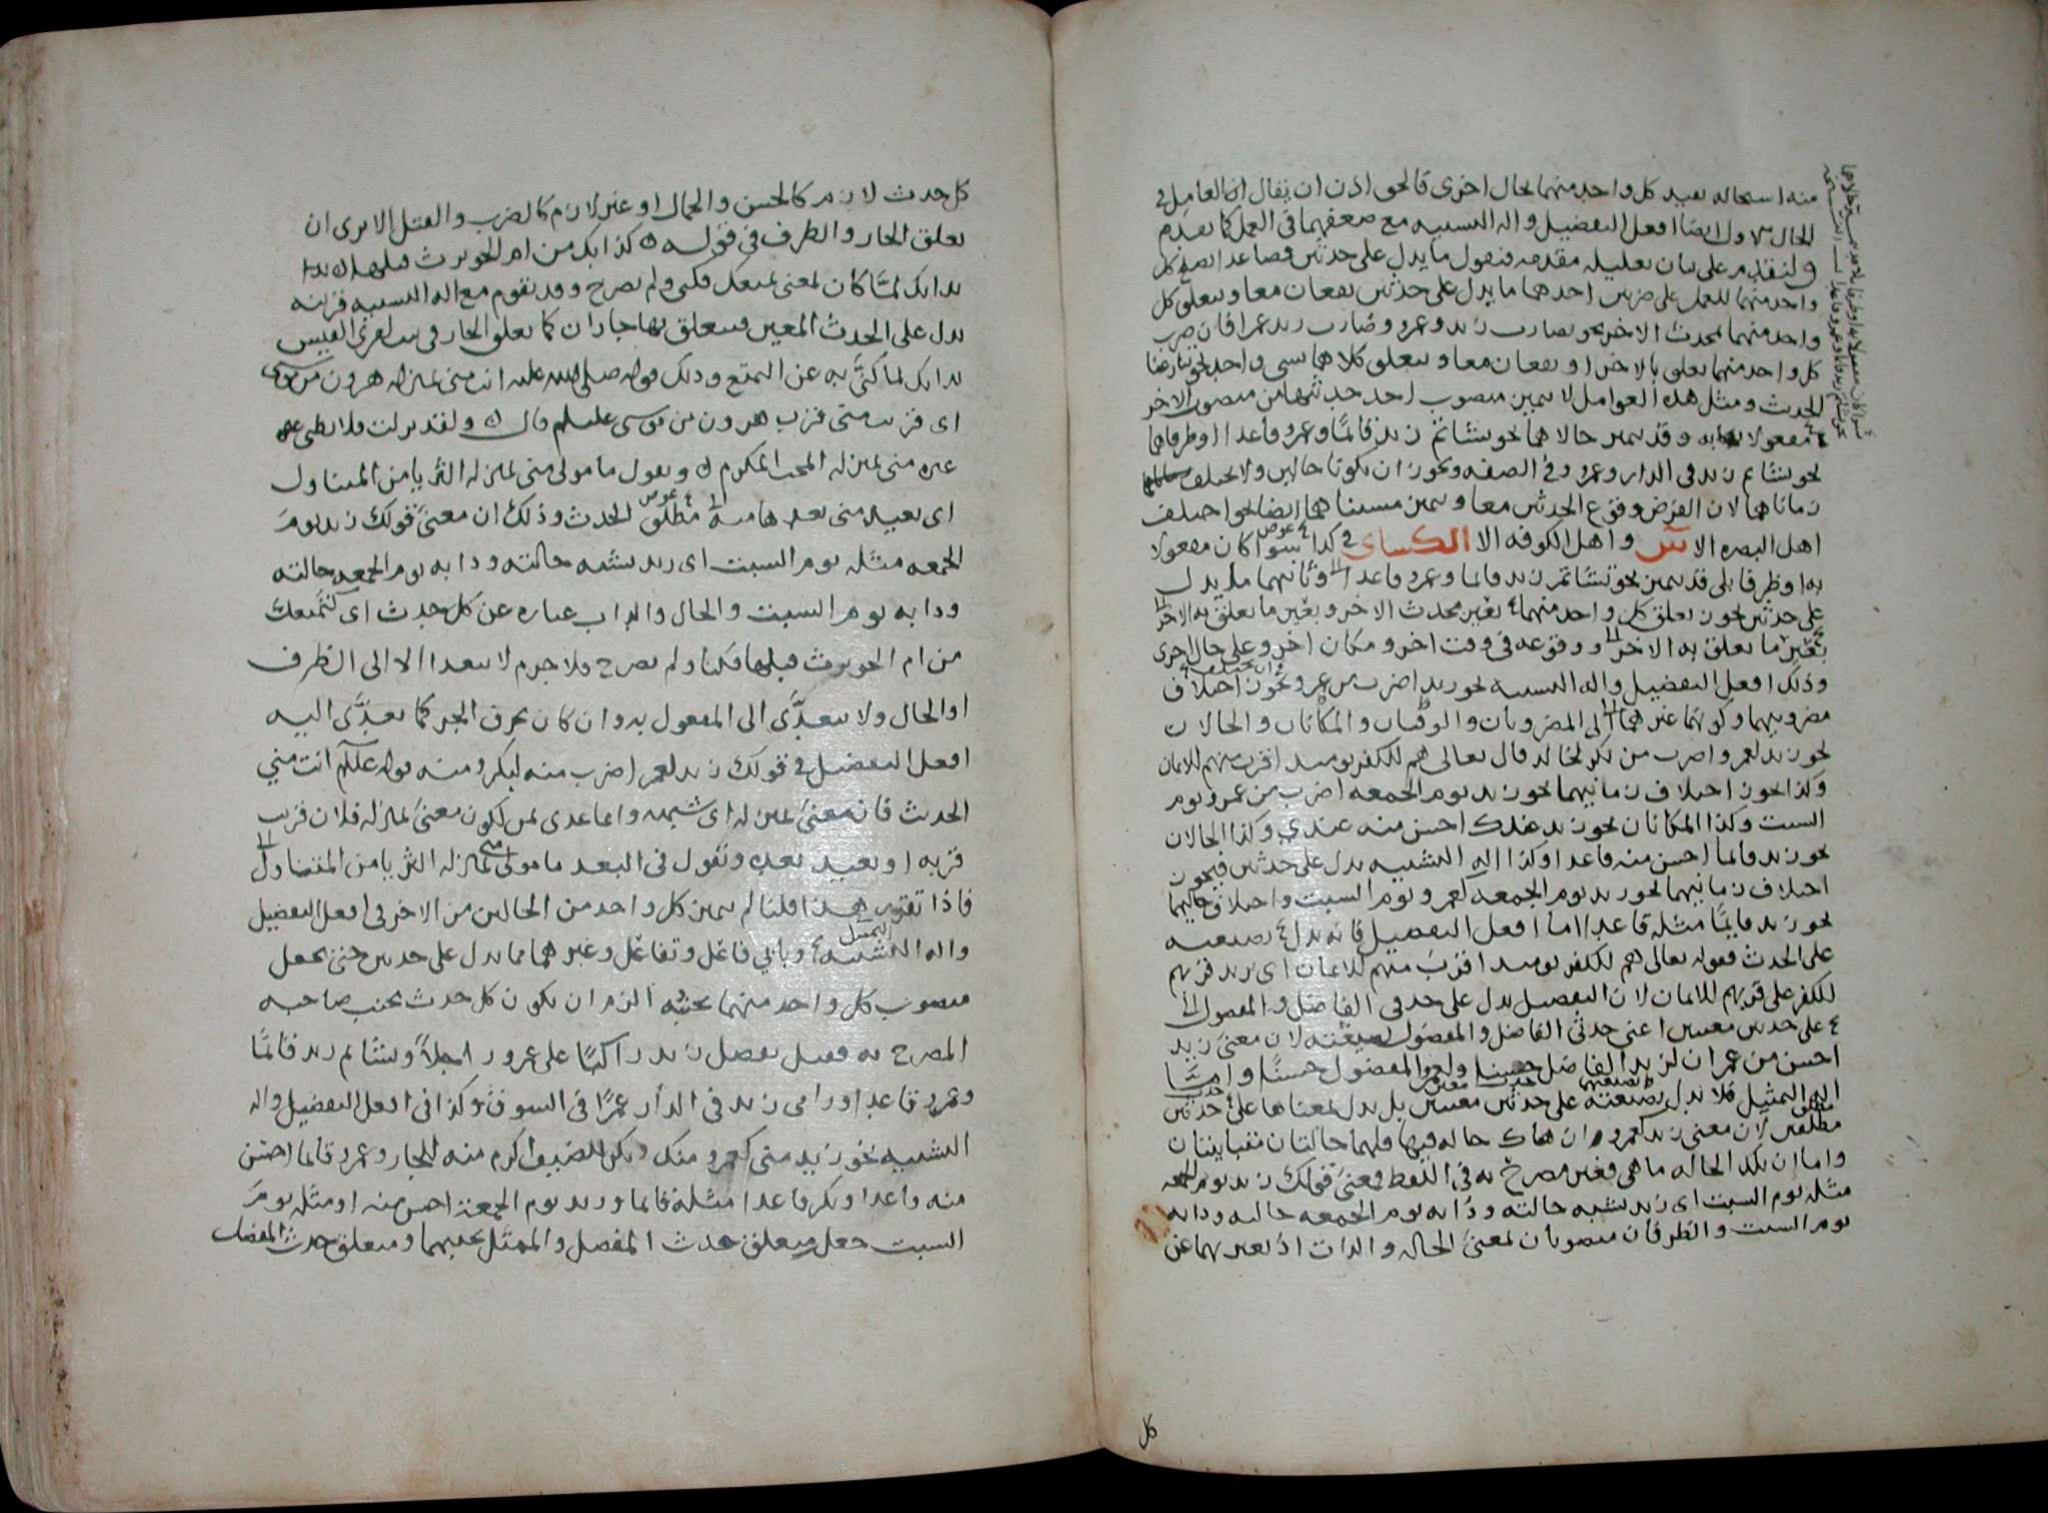 منه استحاله تقييد كل واحد منهما بحال اخرى فالحق اذن ان يقال ان العامل في
الحال الاول ايضا افعل التفضيل واله التشبيه مع ضعفهما في العمل كما تقدم
ولنقدم على بيان تعليله مقدمه فنقول ما يدل على حدثين فصاعدا يصلح كل
واحد منهما للعمل على ضربين احدهما ما يدل على حدثين يقعان معا ويتعلق كل
واحد منهما بمحدث الاخر نحو تضارب زيد وعمرو وضارب زيد عمرا فان ضرب
كل واحد منهما تعلق بالاخر او يقعان معا ويتعلق كلاهما بشي واحد نحو تنازعنا
الحديث ومثل هذه العوامل لا يتميز منصوب احد حدثيها من منصوب الاخر
مفعولا به وقد يتميز حالاهما نحو تشاتم زيد قائمًا وعمرو قاعدا او ظرفاهما
نحو تشاتم زيد في الدار وعمرو في الصفه ويجوز ان يكونا حالين ولا يختلف
زماناهما لان الفرض وقوع الحدثين معا ويتميز مسببا هما ايضا نحو اختلف
اهل البصره الا س واهل الكوفه الا الكساى في كذا سوا كان مفعولا
به او ظرفا بلى قد يتميز نحو تشاتم زيد قائما وعمرو قاعدا وثانيهما ما يدل
على حدثين يجوز تعلق كل واحد منهما بغير محدث الاخر وبغير ما تعلق به الاخر
بغير ما تعلق به الاخر ووقوعه في وقت اخر ومكان اخر وعلى حال اخرى
وذلك افعل التفضيل واله التشبيه نحو زيد اضرب من عمرو ويجوز اختلاف
مضروبيهما وكونهما غيرهما الى المضروبان والوقتان والمكانان والحالان
نحو زيد لعمرو اضرب من بكر لخالد قال تعالى هم للكفر يومئذ اقرب منهم للايمان
وكذا يجوز اختلاف زمانيهما نحو زيد يوم الجمعه اضرب من عمرو يوم
السبت وكذا المكانان نحو زيد عندك احسن منه عندي وكذا الحالان
نحو زيد قائما احسن منه قاعدا وكذا اله التشبيه يدل على حدثين فيجوز
اختلاف زمانيهما نحو زيد يوم الجمعه كعمرو يوم السبت واختلاف حاليهما
نحو زيد قايمًا مثله قاعدا اما افعل التفضيل فانه يدل بصيغته
على الحدث فقوله تعالى هم للكفر يومئذ اقرب منهم للايمان اى زيد قربهم
للكفر على قربهم للايمان لان التفضيل يدل على حدثي الفاضل والمفضول
على حدثين معينين اعنى حدثي الفاضل والمفضول بصيغته لان معنى زيد
احسن من عمر ان لزيد الفاضل حسنا ولعمرو المفضول حسنًا واما
اله التمثيل فلا يدل بصيغته على حدثين معينين بل يدل بمعناها على حدثين
مطلقين لان معنى زيد كعمرو ان هناك حاله فيها فلهما حالتان متباينتان
واما ان تلك الحاله ما هى فغير مصرح به في اللفظ فمعنى قولك زيد يوم الجمعه
مثله يوم السبت اى زيد يشبه حالته ودابه يوم الجمعه حالته ودابه
يوم السبت والظرفان منصوبان لمعنى الحاله والداب اذ يعبر بهما عن
كل
كل حدث لازم كالحسن والجمال او غير لازم كالضرب والقتل الا ترى ان
تعلق الجار والظرف في قوله كدابك من ام الحويرث قبلها ان
بدابك لما كان لمعنى تمتعك فكنى ولم يصرح وقد تقوم مع اله التشبيه قرينه
تدل على الحدث المعين فيتعلق بها جاران كما تعلق الجار في بيت امرئ القيس
بدابك لما كنّى به عن التمتع وذلك قوله صلى الله عليه انت منى بمنزله هرون من موسى
اى قربت منى قرب هرون من موسى عليلم قال ولقد نزلت فلا تظنى
غيره منى بمنزله المحب المكرم وتقول ما مولى منى بمنزله الثريا من المتناول
اى بعيد منى بعدها منه مطلق الحدث وذلك ان معنى قولك زيد يوم
الجمعه مثله يوم السبت اى زيد يشبه حالته ودابه يوم الجمعه حالته
ودابه يوم السبت والحال والداب عباره عن كل حدث اى كتمتعك
من ام الحويرث قبلها فكنا ولم يصرح فلا جرم لا يتعدا الا الى الظرف
او الحال ولا يتعدّى الى المفعول به وان كان بحرف الجر كما تعدّى اليه
افعل التفضيل في قولك زيد لعمر اضرب منه لبكر ومنه قوله عللم انت مني
الحديث فان معنى بمنزله اى شبيه وانما عدى بمن لكون معنى بمنزله فلان قرب
قربه او بعيد بعده وتقول في البعد ما مولى منى بمنزله الثريا من المتناول
فاذا تقرر هذا قلنا لم يتميز كل واحد من الحالين من الاخر في افعل التفضيل
واله التشبيه وبابي فاعَل وتفاعَل وغيرهما مما يدل على حدثين حتى يجعل
منصوب كل واحد منهما بجنبه الزم ان يكون كل حدث بجنب صاحبه
المصرح به فقيل تفضل زيد راكبًا على عمرو راجلاً وشاتم زيد قائمًا
وعمرو قاعدا ورامى زيد في الدار عمرًا في السوق وكذا في افعل التفضيل واله
التشبيه نحو زيد منى كعمرو منك وبكر للضيف اكرم منه للجار وعمرو قائما احسن
منه قاعدا وبكر قاعدا مثله قائما وزيد يوم الجمعة احسن منه او مثله يوم
السبت جعل متعلق حدث المفضل والممثل بجنبهما ومتعلق حدث المفضل